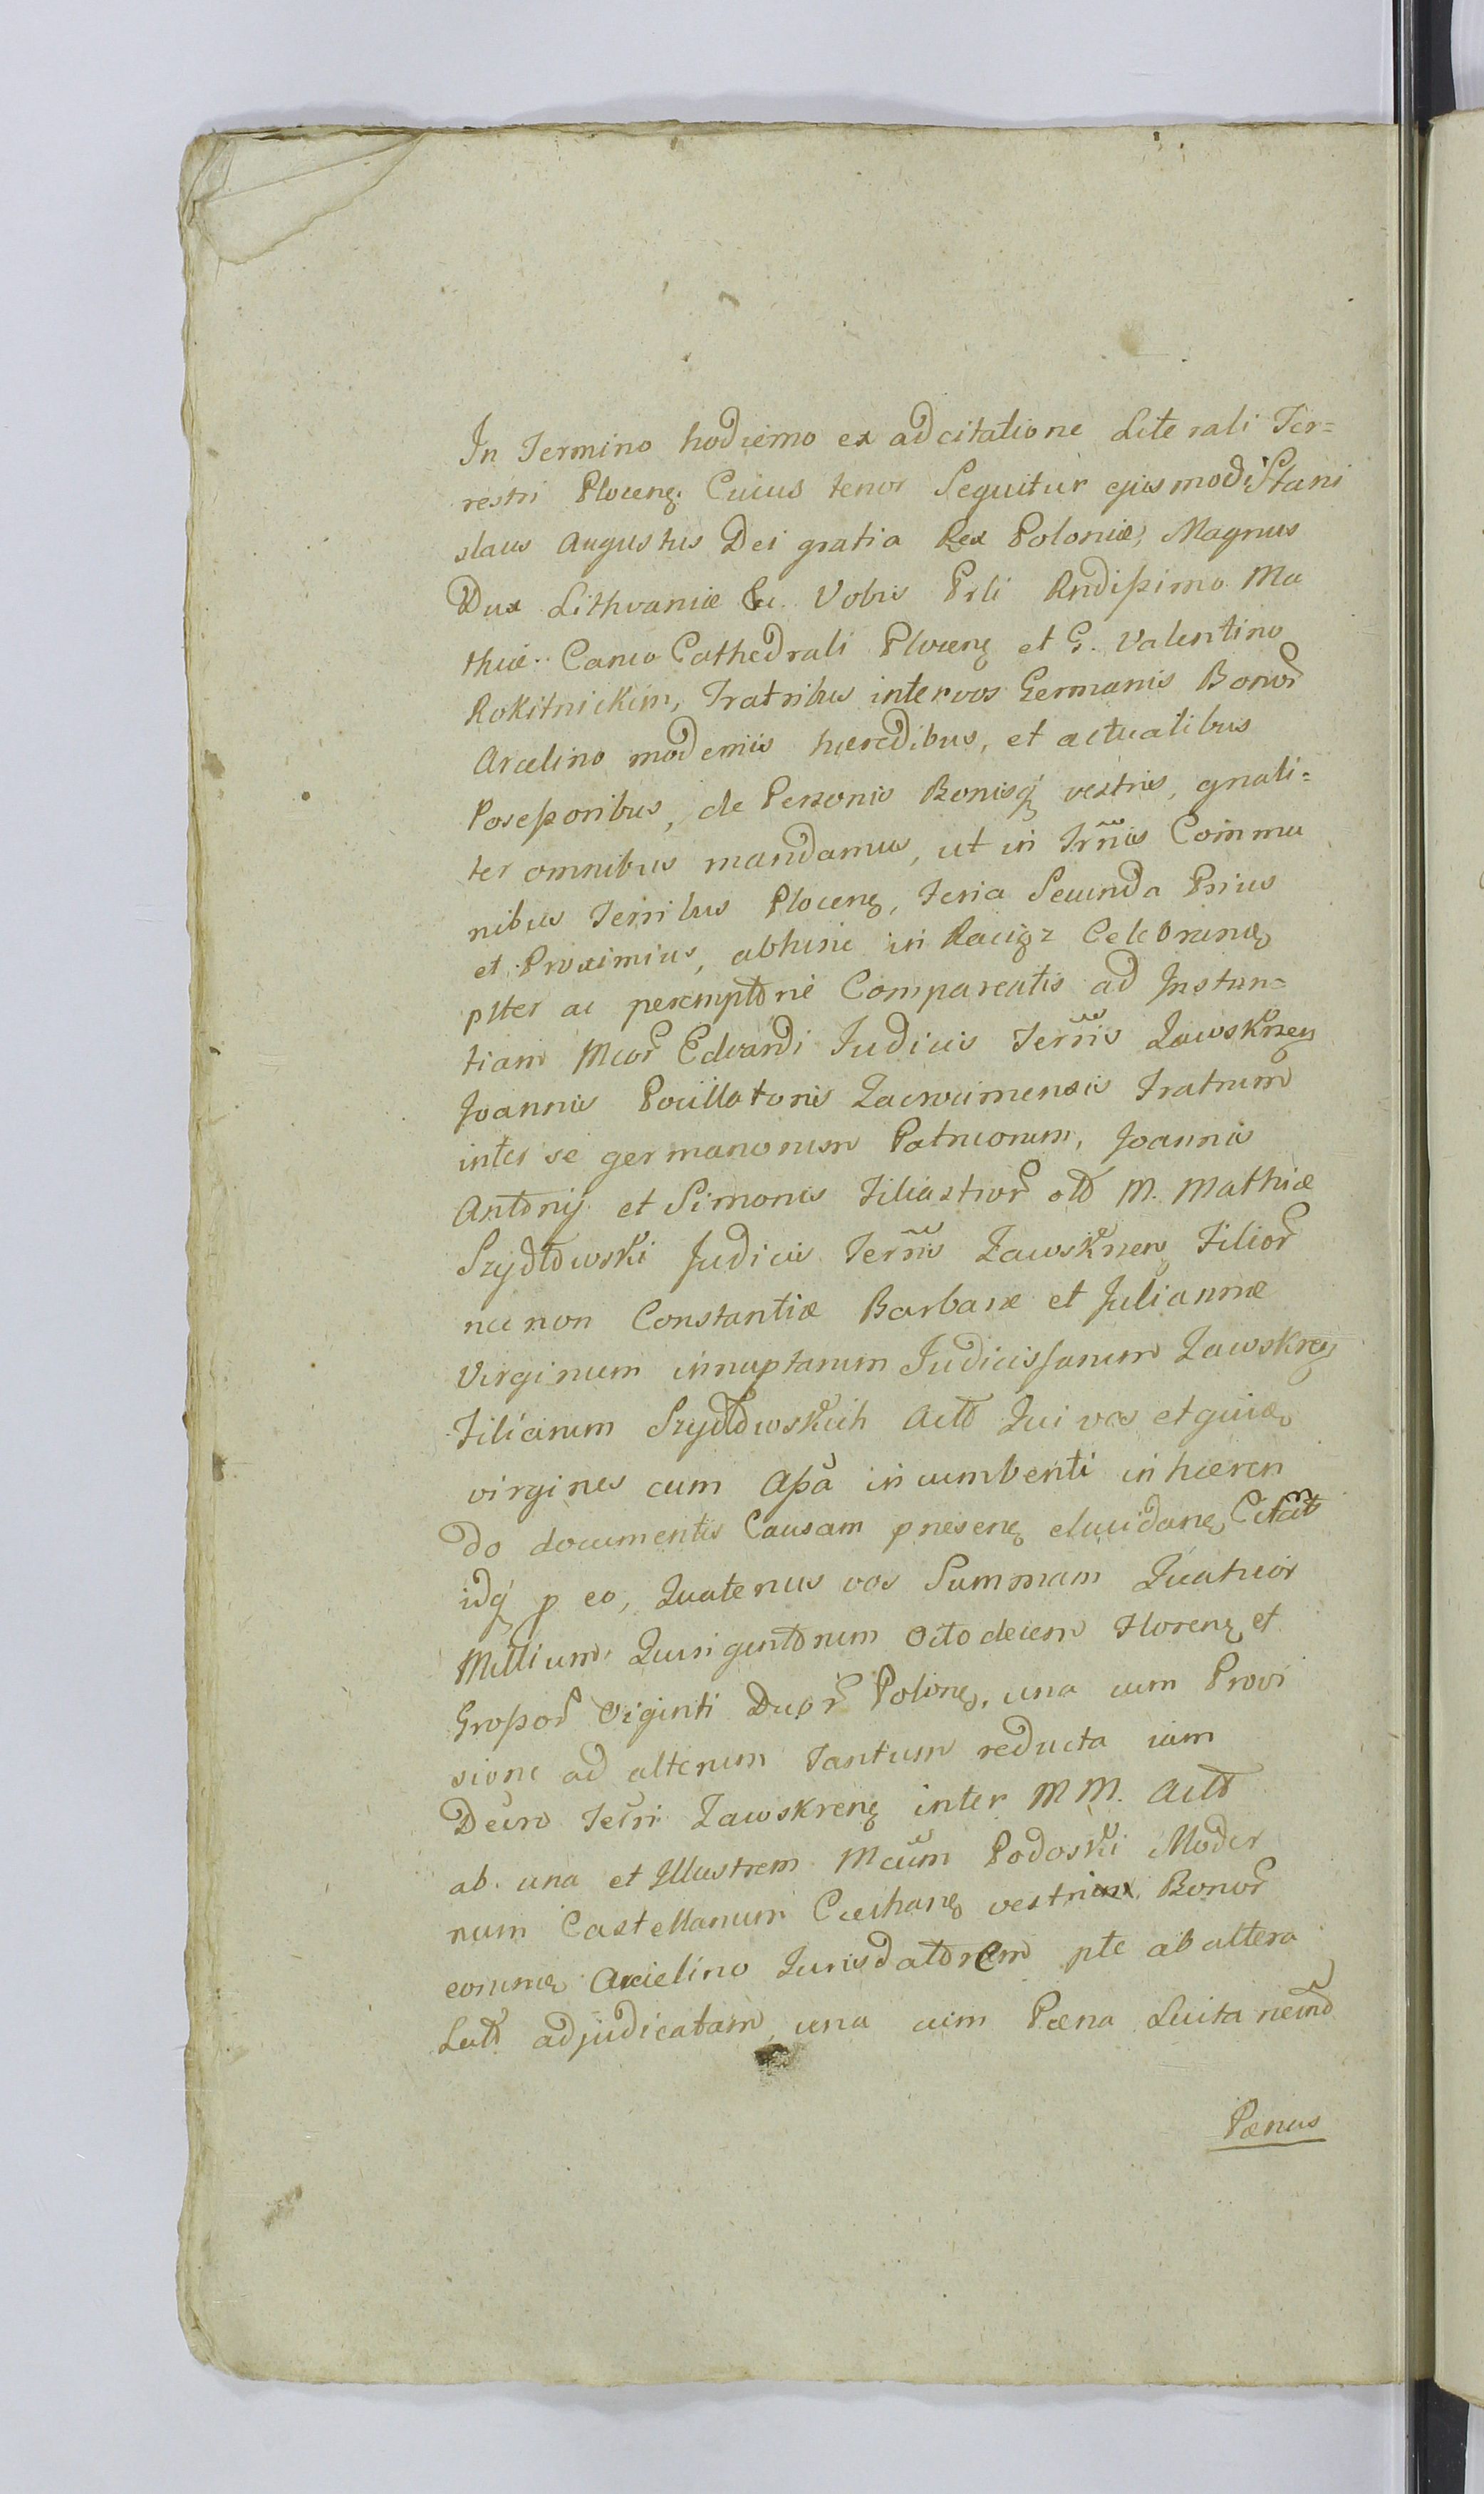 In Termino hodierno ex adcitatione Literali Ter=
restri Plocenꝫ. Cuius tenor Sequitur ejusmodi Stani
slaus Augustus Dei gratia Rex Poloniæ, Magnus
Dux Lithvaniæ &c. Vobis Prli Rndissimo Ma
thiæ.. Canco Cathedrali Plocenꝫ et G. Valentino
Rokitnickim, Fratribus inter vos Germanis Bonor
Arcelino modernis hæredibus, et actualibus
Possessoribus, de Personis Bonisq vestris, gnali=
ter omnibus mandamus, ut in Trnis Commu
nibus Terribus Plocenꝫ, Feria Secunda Prius
et Proximius, abhinc in Raciąz Celebranꝫ
plter ac peremptorie Compareatis ad Instan=
tiam Mcor Edvardi Judicis Terris Zawskrzen
Joannis Pocillatoris Zacrocimensis Fratrum
inter se germanorum Patruorum, Joannis
Antonij et Simonis Filiastror olD M. Mathiæ
Szydłowski Judicis Terris Zawskrzenꝫ Filior
nec non Constantiæ Barbaræ et Juliannæ
Virginum innuptarum Judicissarum Zawskrenꝫ
Filiarum Szydłowskich Act Qui vos et quiæ
virgines cum Assa incumbenti inhæren
do documentis Causam presenꝫ elucidanꝫ Citant
idq p eo, Quatenus vos Summam Quatuor
Millium, Quingentorum Octodecem Florenꝫ et
Grossor Viginti Duor Polonꝫ, una cum Provi
sione ad alterum Tantum reducta iam
Decro Terri Zawskrenꝫ inter M M. Act
ab. una et Illustrem Mcum Podoski Moder
num Castellanum Ciechanꝫ vestrum Bonor
eorumꝫ Arcielino Jurisdatorem pte ab altera
Lato adjudicatam, una cum Pæna Luita nemD
Pænus